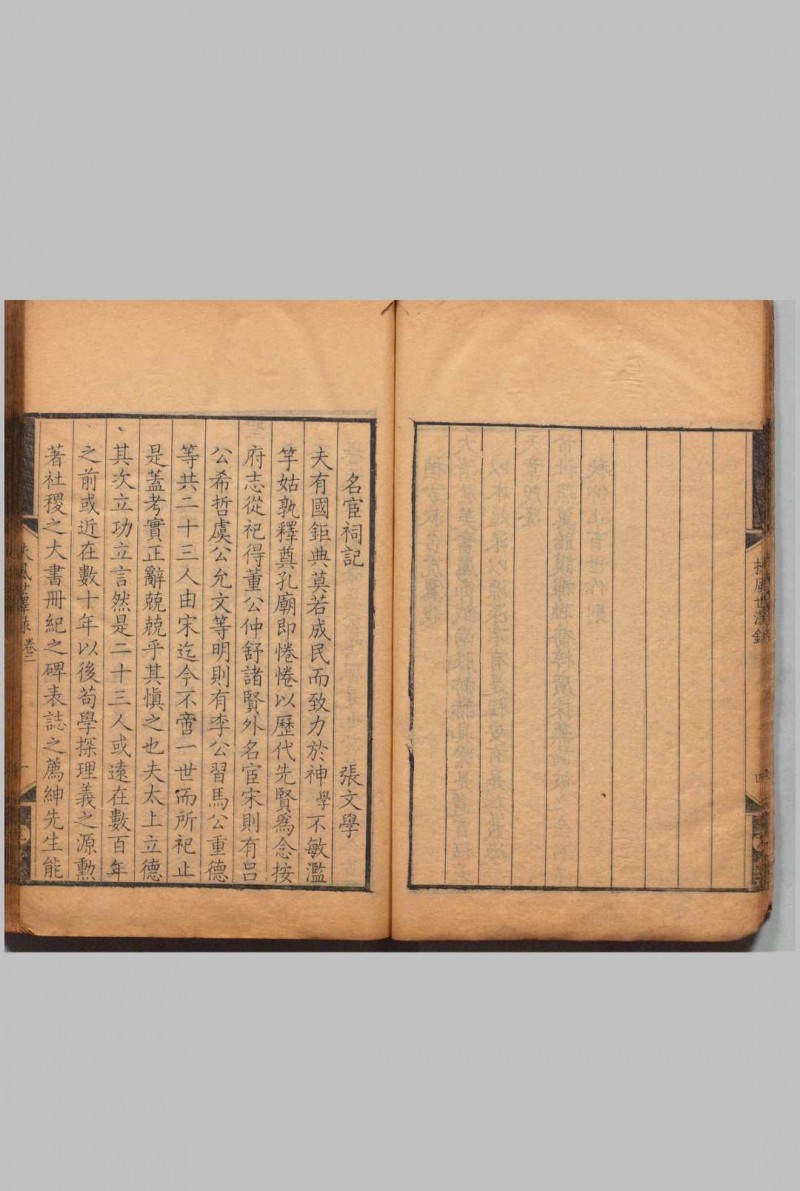 扶風世澤錄
四
名宦祠記
張文學
夫有國鉅典莫若成民而致力於神學不敏濫
竽姑孰釋奠孔廟即惓惓以歷代先賢爲念按
府志從祀得董公仲舒諸賢外名宦宋則有呂
公希哲虞公允文等明則有李公習馬公重德
等共二十三人由宋迄今不啻一世而所祀止
是蓋考實正辭兢兢乎其愼之也夫太上立德
其次立功立言然是二十三人或遠在數百年
之前或近在數十年以後苟學探理義之源勳
著社稷之大書冊紀之碑表誌之薦紳先生能
扶風世澤錄 卷二
一